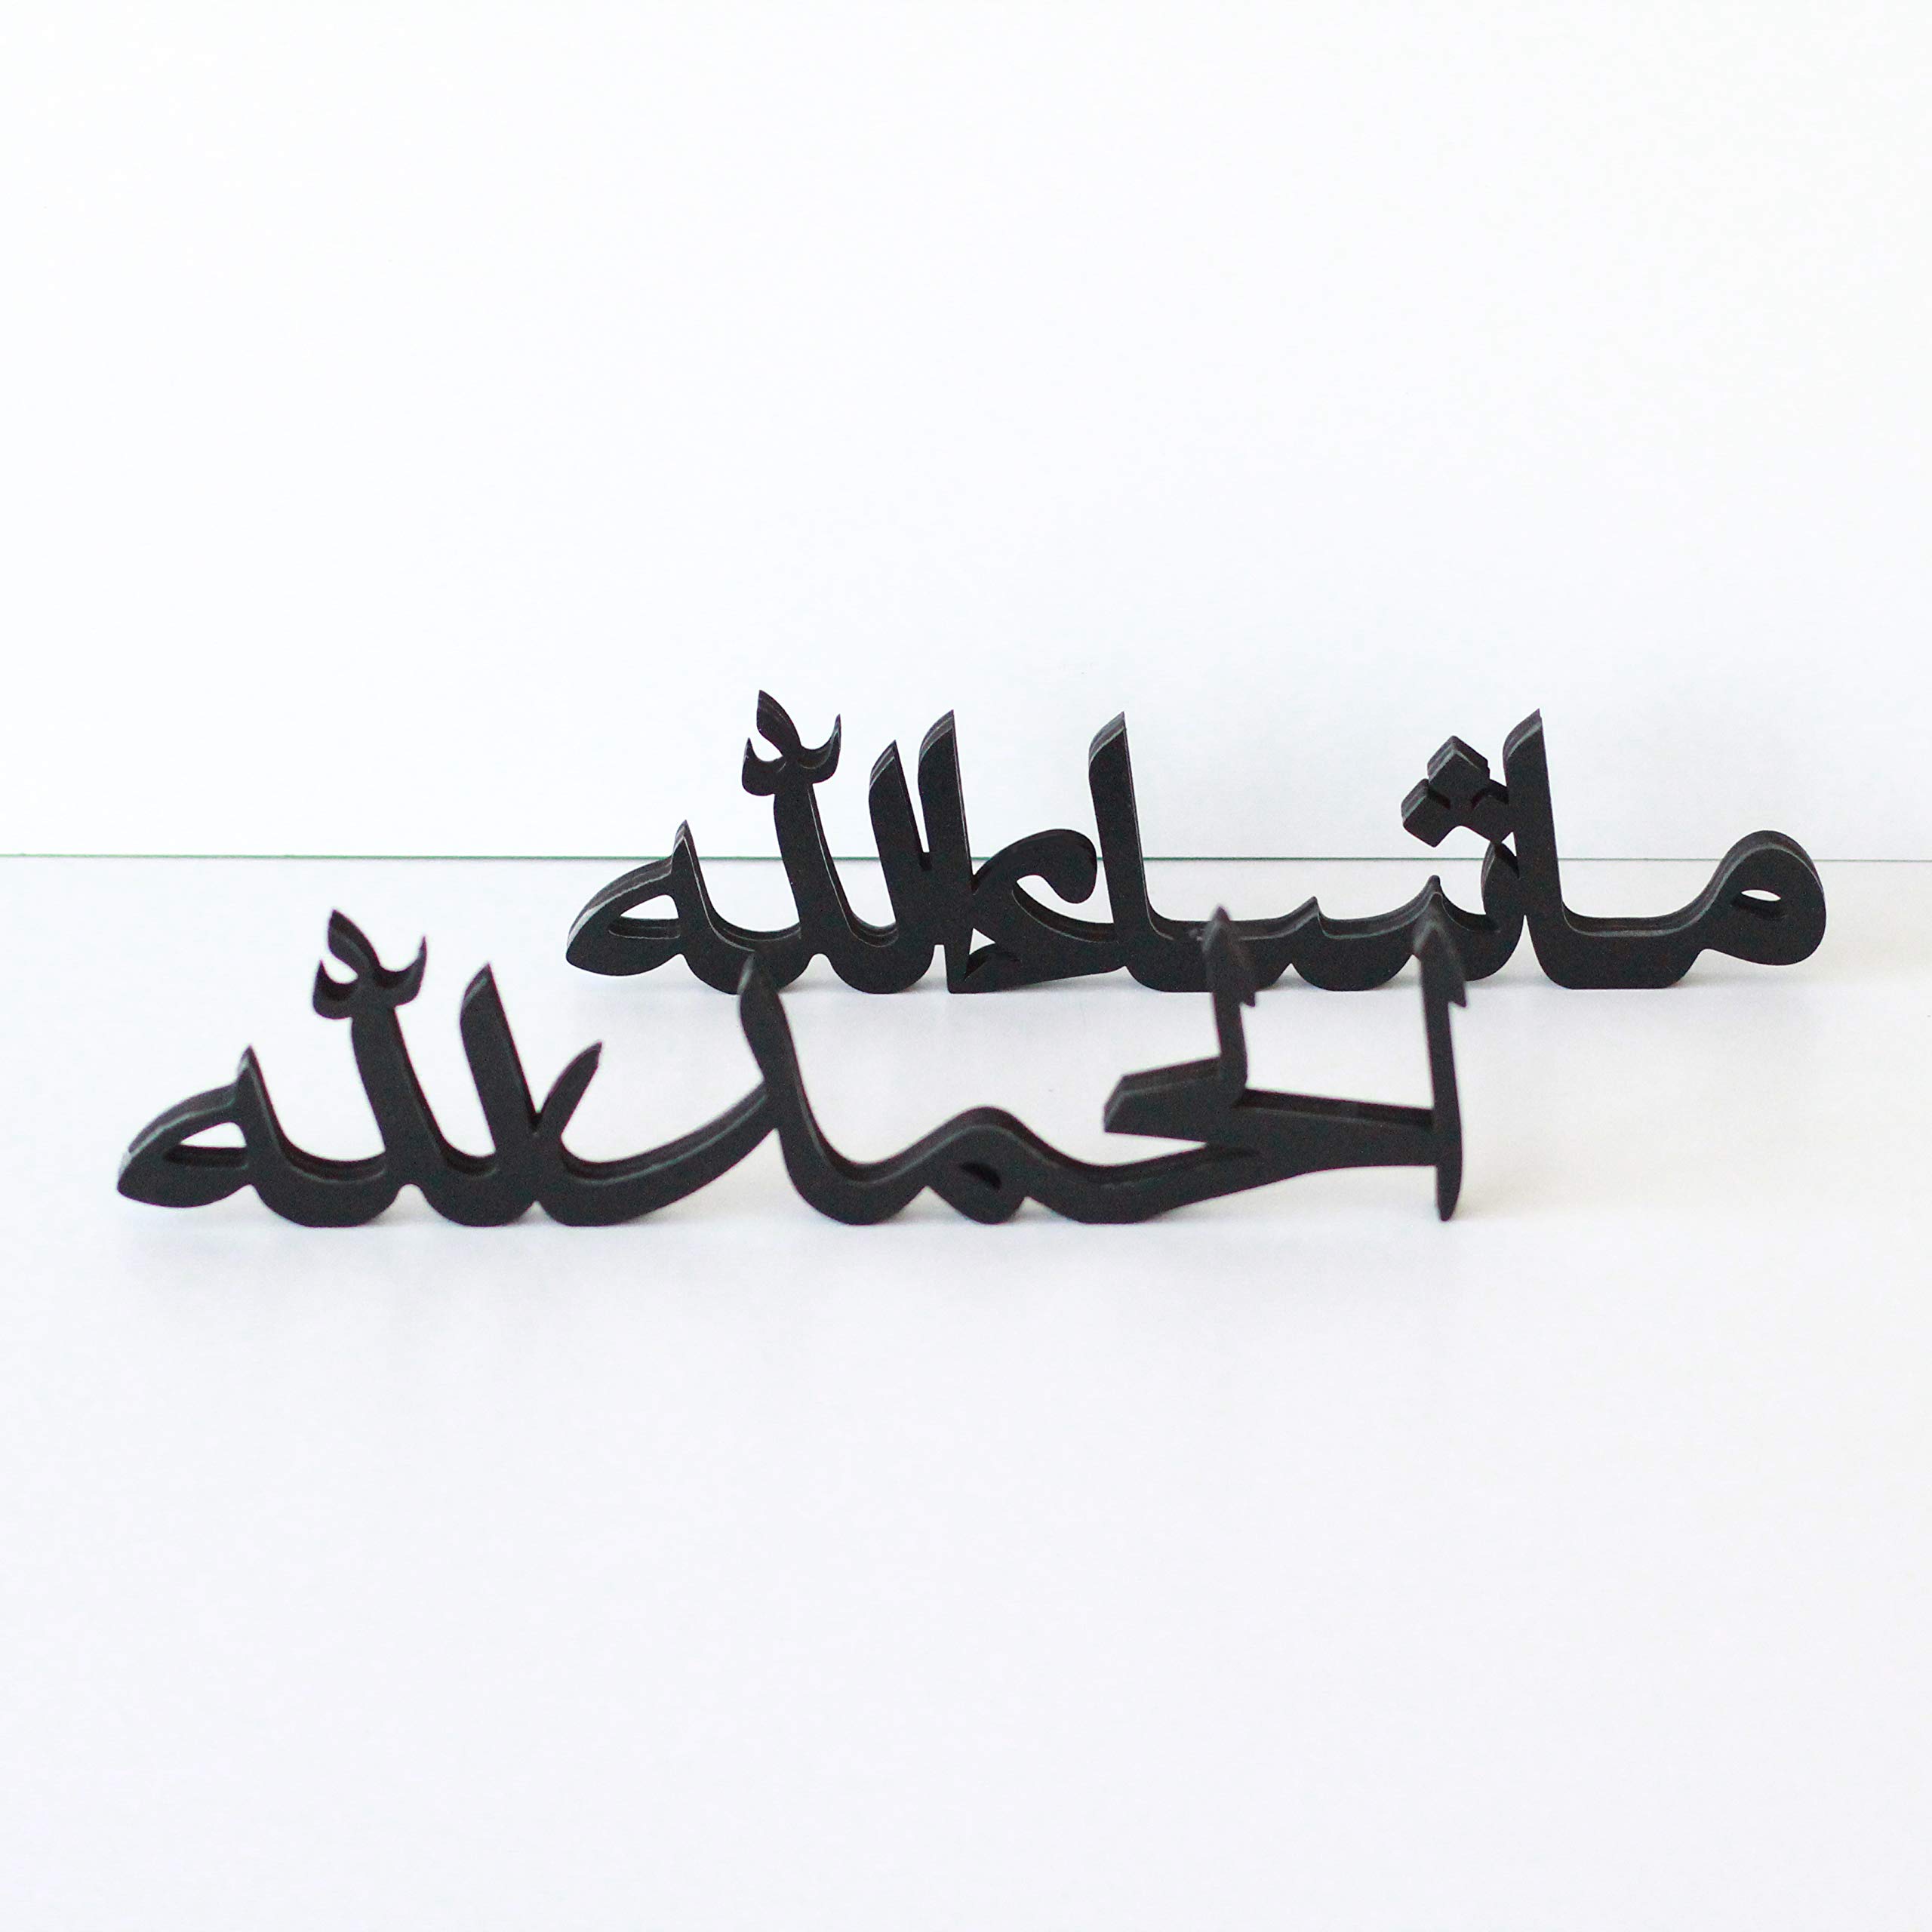 ماشاء الله
الحمد لله